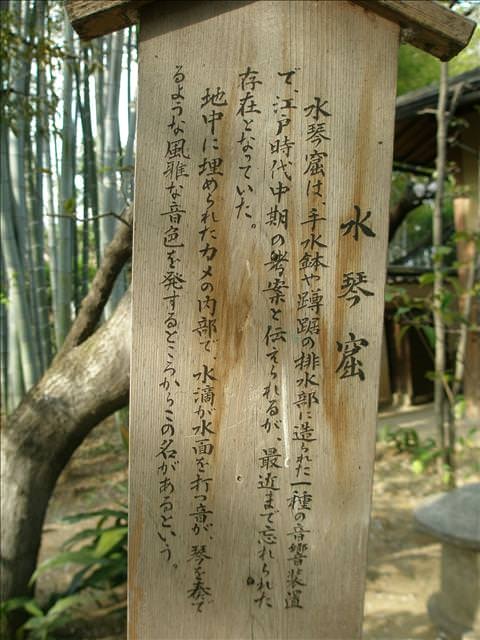 水琴窟
水琴窟は、手水鉢や蹲踞の排水部に造られた一種の音響装置
で、江戸時代中期の考案と伝えられるが、最近まで忘れられた
存在となっていた。
地中に埋められたカメの内部で、水滴が水面を打つ音が、琴を奏で
るような風雅な音色を発するところからこの名があるという。